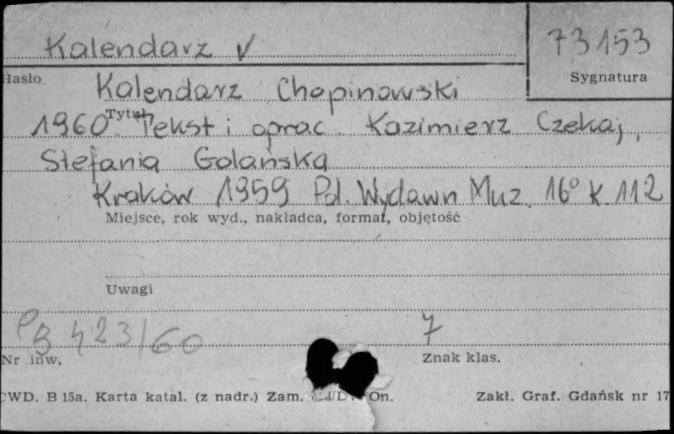 Kalendarz v
73153
Hasło
Sygnatura
Kalendarz Chopinowski
Tytuł
1960. Tekst i oprac. Kazimierz Czekaj,
Stefania Golańska
Kraków 1959 Pol. Wydawn Muz. 16° K 112
Miejsce, rok wyd., nakładca, format, objętość
Uwagi
423/60
7
Nr inw.
Znak klas.
CWD. B 15a. Karta katal. (z nadr.) Zam. On. Zakł. Graf. Gdańsk nr 17